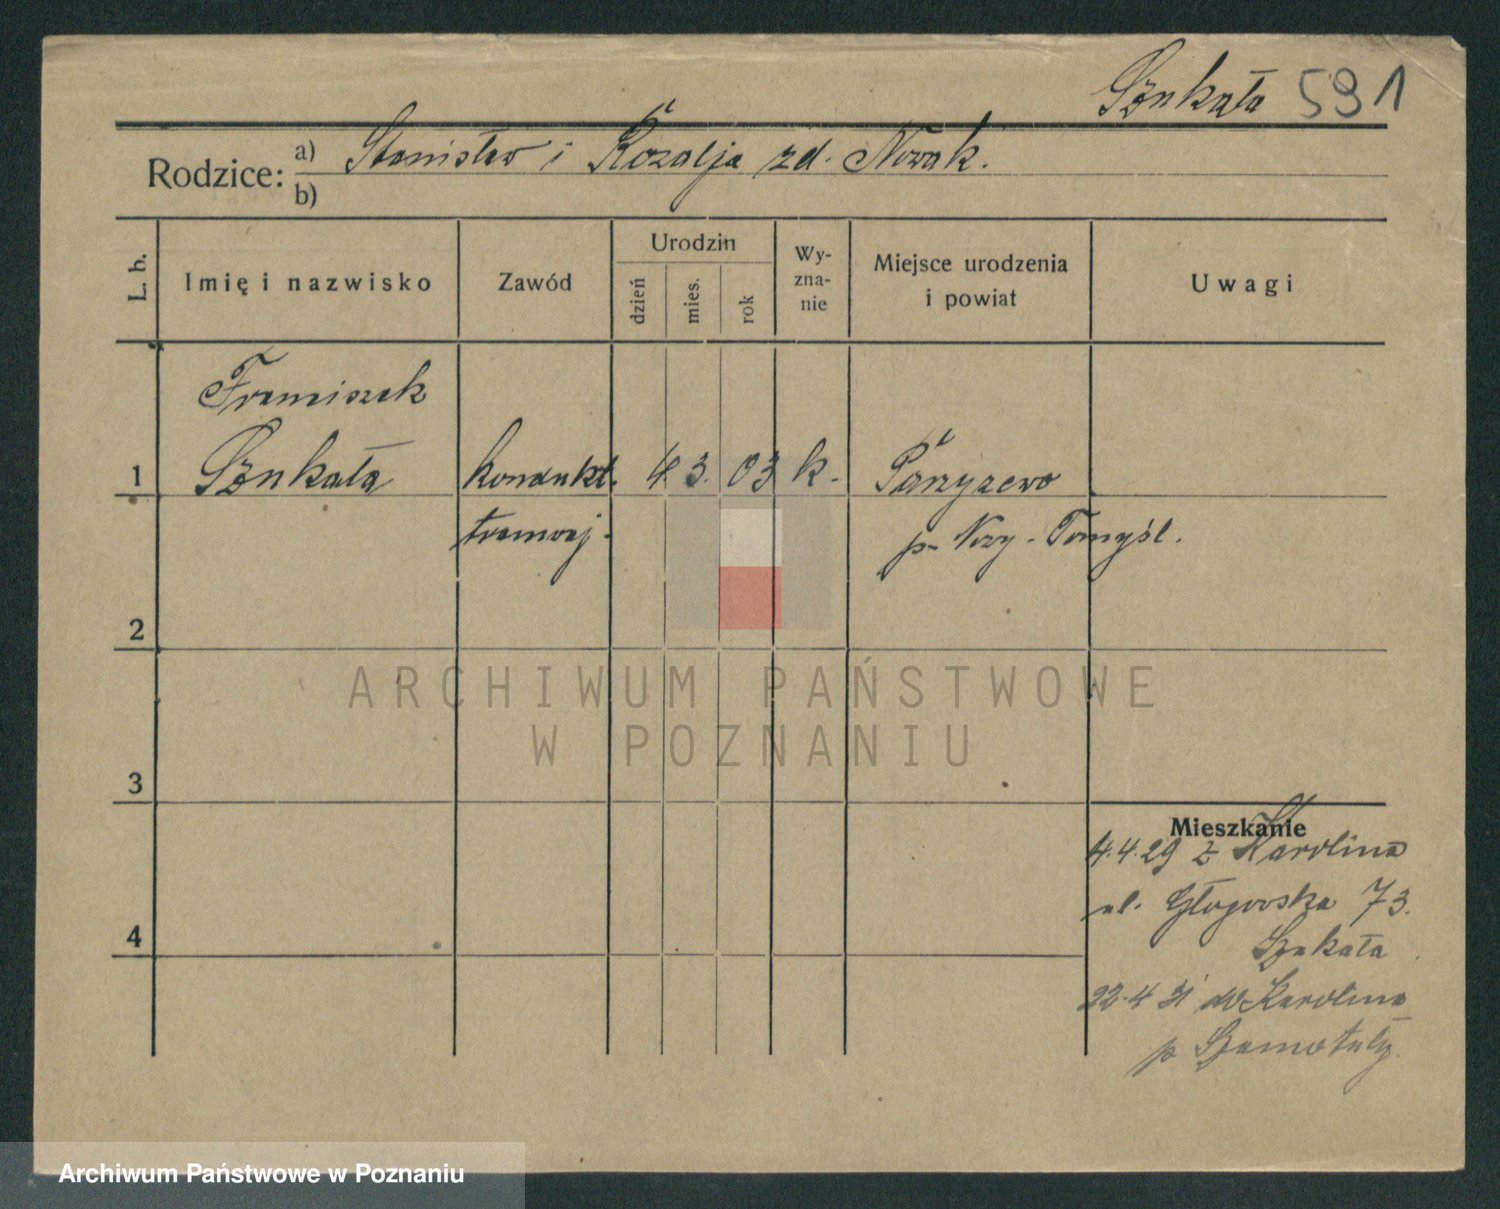 Szukała 591
Rodzice: a) Stanisław i Rozalja zd. Nowak.
b)
L. b.
Imię i nazwisko
Zawód
Urodzin
dzień
mies.
rok
Wy-
zna-
nie
Miejsce urodzenia
i powiat
Uwagi
Franciszek
1 Szukała kondukt. 4 3. 03 k. Parzyzewo
tramwaj. p. Nowy-Tomyśl.
2
ARCHIWUM PAŃSTWOWE
W POZNANIU
3
Mieszkanie
4.4.29 z Karolina
ul. Głogowska 73.
4
Szukała
22.4 31 do Karolina
p Szamotuły
Archiwum Państwowe w Poznaniu